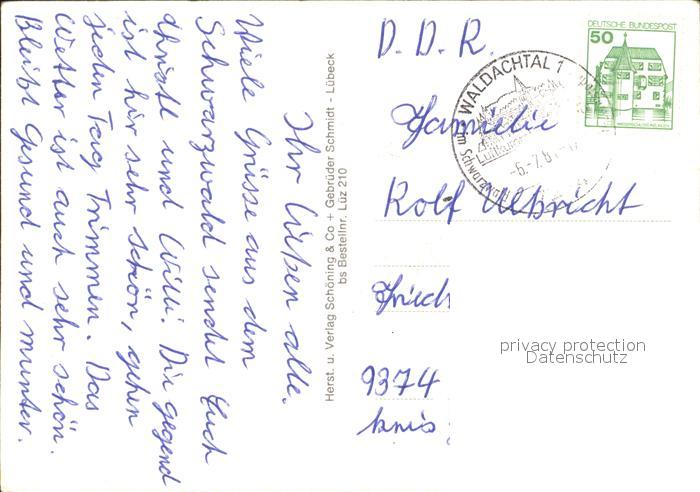 Ihr lieben alle.
Viele Grüsse aus dem
Schwarzwald sendet Euch
und Willi. Die gegend
ist hir sehr schön, gehen
jeden Tag Trimmen. Das
Wetter ist auch sehr schön.
Bleibt Gesund und munter.
Herst. u. Verlag Schöning & Co + Gebrüder Schmidt - Lübeck
bs Bestellnr. Lüz 210
D. D. R.
DEUTSCHE BUNDESPOST
50
WALDACHTAL 1
im Schwarzwald
Luftkurort
Familie
Rolf Ulbricht
Friedr
9374
privacy protection
Datenschutz